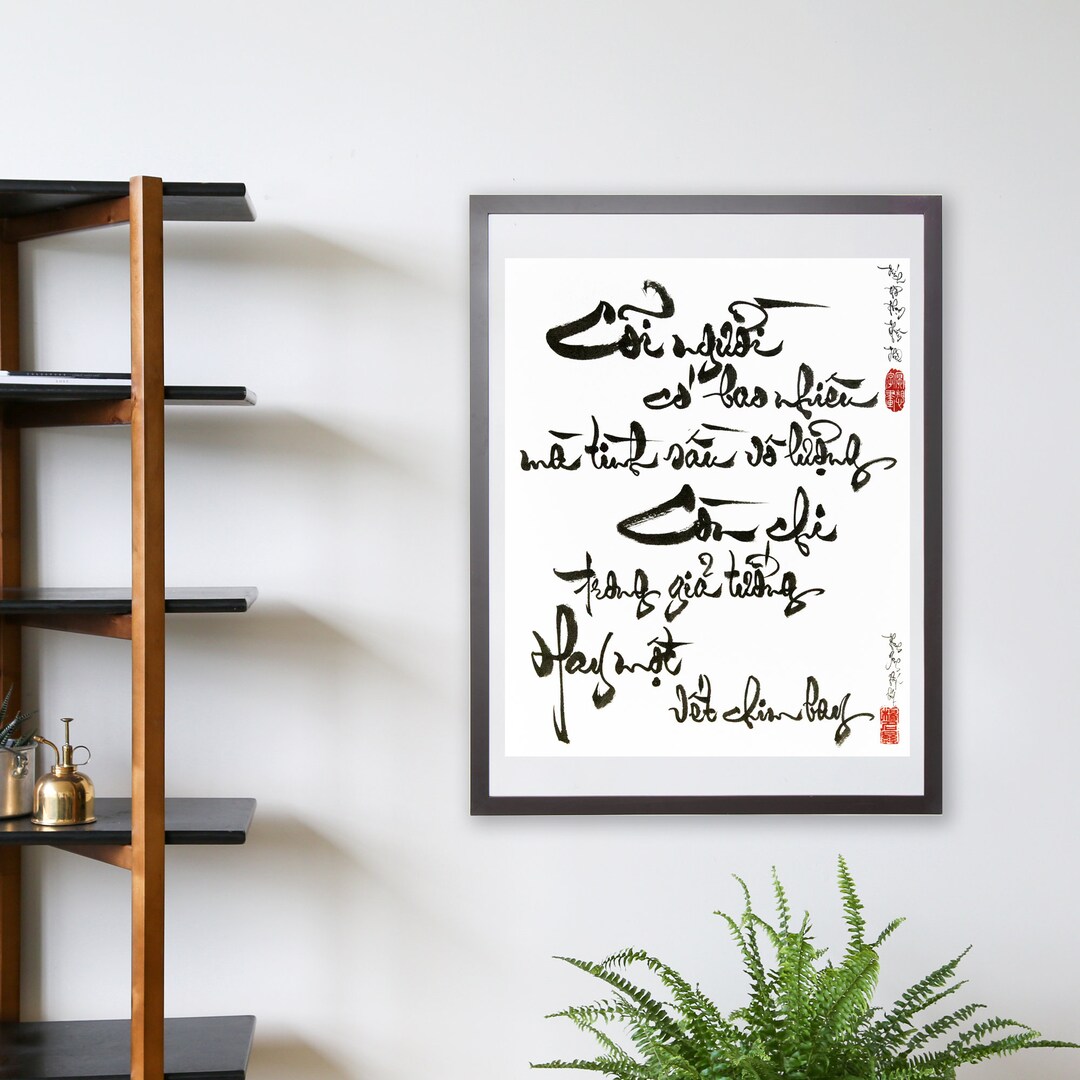 Cõi người
có bao nhiêu
mà tình sầu vô lượng
Còn chi
trong giả tưởng
Hay một
vết chim bay